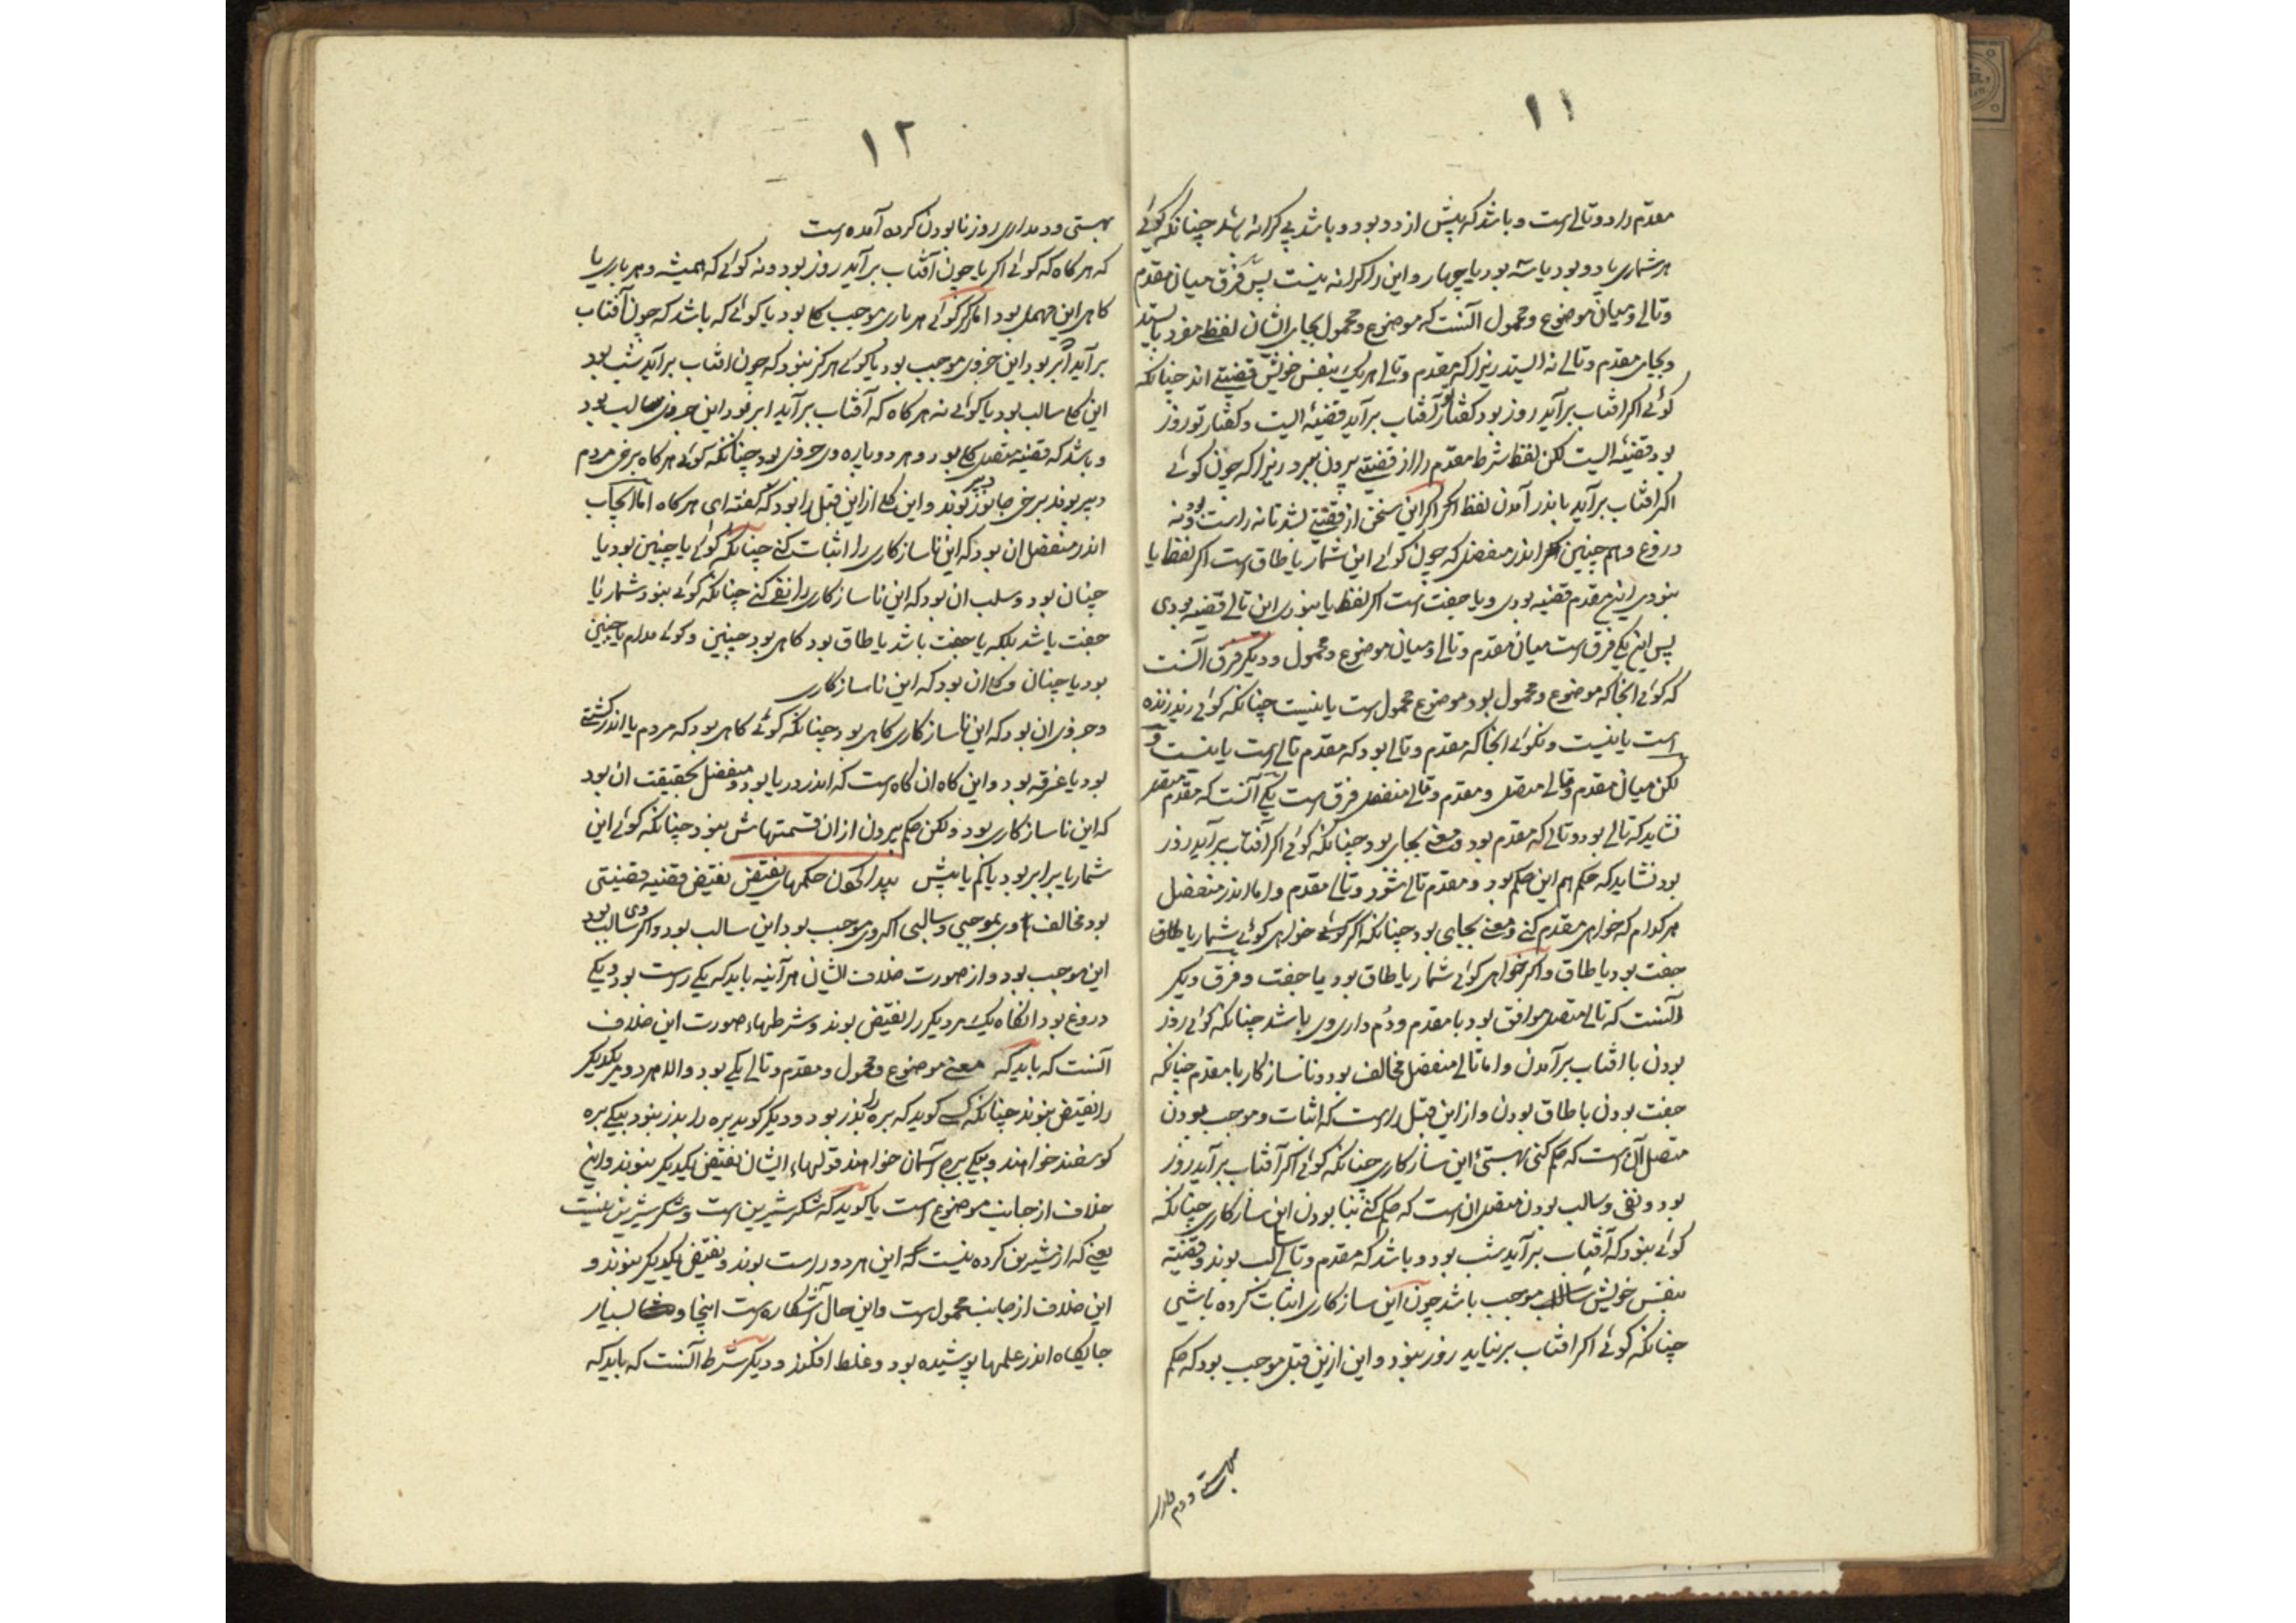 ۱۱
مقدم را دو تالی است و باشد که بیش از دو بود و باشد بی کرانه باشد چنانکه کوئی
هر شماری یا دو بود یا سه بود یا چهار و این را کرانه نیست پس فرق میان مقدم
و تالی و میان موضوع و محمول آنست که موضوع و محمول بجای ایشان لفظی مفرد بایستد
و بجای مقدم و تالی نه ایستد زیرا که مقدم و تالی هر یک بنفس خویش قضیتی اند چنانکه
کوئی اکر افتاب برآید روز بود کفتار تو آفتاب برآید قضیه ایست و کفتار تو روز
بود قضیه ایست لکن لفظ شرط مقدم را از قضیتی بیرون ببرد زیرا که چون کوئی
اکر افتاب برآید باندر آمدن لفظ اکر این سخن از قضیتی بشد تا نه راست بود و نه
دروغ و هم چنین اندر منفصل که چون کوئی این شمار یا طاق است اکر لفظ یا
نبودی این مقدم قضیه بودی و یا جفت است اکر لفظ یا نبودی این تالی قضیه بودی
پس این یکی فرق است میان مقدم و تالی و میان موضوع و محمول و دیکر فرق آنست
که کوئی انجا که موضوع و محمول بود موضوع محمول است یا نیست چنانکه کوئی زید زنده
است یا نیست و نکوئی انجا که مقدم و تالی بود که مقدم تالی است یا نیست و
لکن میان مقدم و تالی متصل و مقدم و تالی منفصل فرق است یکی آنست که مقدم متصل
نشاید که تالی بود و تالی که مقدم بود و معنی بجای بود چنانکه کوئی اکر آفتاب برآید روز
بود نشاید که حکم هم این حکم بود و مقدم تالی شود و تالی مقدم و اما اندر منفصل
هر کدام که خواهی مقدم کنی و معنی بجای بود چنانکه اکر خواهی کوئی شمار یا طاق
جفت بود یا طاق و اکر خواهی کوئی شمار یا طاق بود یا جفت و فرق دیکر
آنست که تالی متصل موافق بود با مقدم و دم داری وی باشد چنانکه کوئی روز
بودن با افتاب برآمدن و اما تالی منفصل مخالف بود و ناسازکار با مقدم چنانکه
جفت بودن با طاق بودن و از این قبل را است که اثبات و موجب بودن
متصل آن است که حکم کنی بهستیء این سازکاری چنانکه کوئی اکر آفتاب برآید روز
بود و نفی و سالب بودن متصل ان است که حکم کنی بنا بودن این سازکاری چنانکه
کوئی نبود که آفتاب برآید شب بود و باشد که مقدم و تالی سالب بوند و قضیه
بنفس خویش موجب باشد چون این سازکاری اثبات کرده باشی
چنانکه کوئی اکر افتاب برنیاید روز نبود و این ازین قبل موجب بود که حکم
بهستی و دم دار
۱۲
بهستی و دمداری روز نابودن کرده آمده است
که هر کاه که کوئی اکر یا چون آفتاب برآید روز بود و نه کوئی که همیشه و هر باری یا
کاهی این مهمل بود اما اکر کوئی هر باری موجب کلی بود یا کوئی که باشد که چون آفتاب
برآید ابر بود این جزوی موجب بود یا کوئی هرکز نبود که چون افتاب برآید شب بود
این کلی سالب بود یا کوئی نه هر کاه که آفتاب برآید ابر بود این جزوی سالب بود
و باشد که قضیه متصل کلی بود و هر دو پاره وی جزوی بود چنانکه کوئی هر کاه برخی مردم
دبیر بوند برخی جانور دبیر بوند و این کلی از این قبل را بود که کفته ای هر کاه اما ایجاب
اندر منفصل ان بود که این ناسازکاری را اثبات کنی چنانکه کوئی یا چنین بود یا
چنان بود و سلب ان بود که این ناسازکاری را نفی کنی چنانکه کوئی نبود شمار یا
جفت باشد بلکه یا جفت باشد یا طاق بود کاهی بود چنین و کوئی مدام یا چنین
بود یا چنان و کلی ان بود که این ناسازکاری
و جزوی ان بود که این ناسازکاری کاهی بود چنانکه کوئی کاهی بود که مردم یا اندر کشتی
بود یا غرقه بود و این کاه ان کاه است که اندر دریا بود و منفصل بحقیقت ان بود
که این ناسازکاری بود ولکن حکم بیرون از ان قسمتهاش نبود چنانکه کوئی این
شمار یا برابر بود یا کم یا بیش پیدا کردن حکمهای نقیض نقیض قضیه قضیتی
بود مخالف وی بموجبی و سالبی اکر وی موجب بود این سالب بود و اکر وی سالب بود
این موجب بود و از صورت خلاف ایشان هرآینه باید که یکی راست بود و یکی
دروغ بود انکاه یک مر دیکر را نقیض بوند و شرطهاء صورت این خلاف
آنست که باید که معنی موضوع و محمول و مقدم و تالی یکی بود والا هر دو مر یکدیکر
را نقیض نبوند چنانکه کسی کوید که بره را پدر بود و دیکر کوید بره را پدر نبود بیکی بره
کوسفند خواهند و بیکی بره آسمان خواهند قولهاء ایشان نقیض یکدیکر نبوند و این
خلاف از جانب موضوع است یا کوید که شکر شیرین است و شکر شیرین نیست
یعنی که از شیرین کرده نیست که این هر دو راست بوند و نقیض یکدیکر نبوند و
این خلاف از جانب محمول است و این حال آشکاره است اینجا و بسیار
جایکاه اندر علمها پوشیده بود و غلط افکند و دیکر شرط آنست که باید که